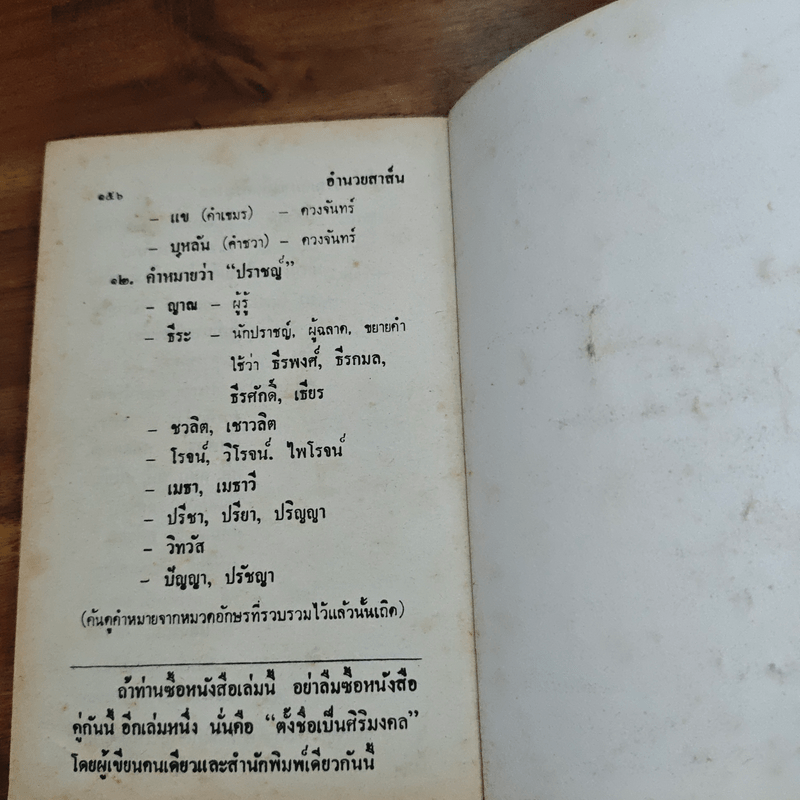 ๑๕๖
อำนวยสาส์น
– แข (คำเขมร) – ดวงจันทร์
– บุหลัน (คำชวา) – ดวงจันทร์
๑๒. คำหมายว่า “ปราชญ์”
– ญาณ – ผู้รู้
– ธีระ – นักปราชญ์, ผู้ฉลาด, ขยายคำ
ใช้ว่า ธีรพงศ์, ธีรกมล,
ธีรศักดิ์, เธียร
– ชวลิต, เชาวลิต
– โรจน์, วิโรจน์. ไพโรจน์
– เมธา, เมธาวี
– ปรีชา, ปรียา, ปริญญา
– วิทวัส
– ปัญญา, ปรัชญา
(ค้นดูคำหมายจากหมวดอักษรที่รวบรวมไว้แล้วนั้นเถิด)
ถ้าท่านซื้อหนังสือเล่มนี้ อย่าลืมซื้อหนังสือ
คู่กันนี้ อีกเล่มหนึ่ง นั่นคือ “ตั้งชื่อเป็นศิริมงคล”
โดยผู้เขียนคนเดียวและสำนักพิมพ์เดียวกันนี้